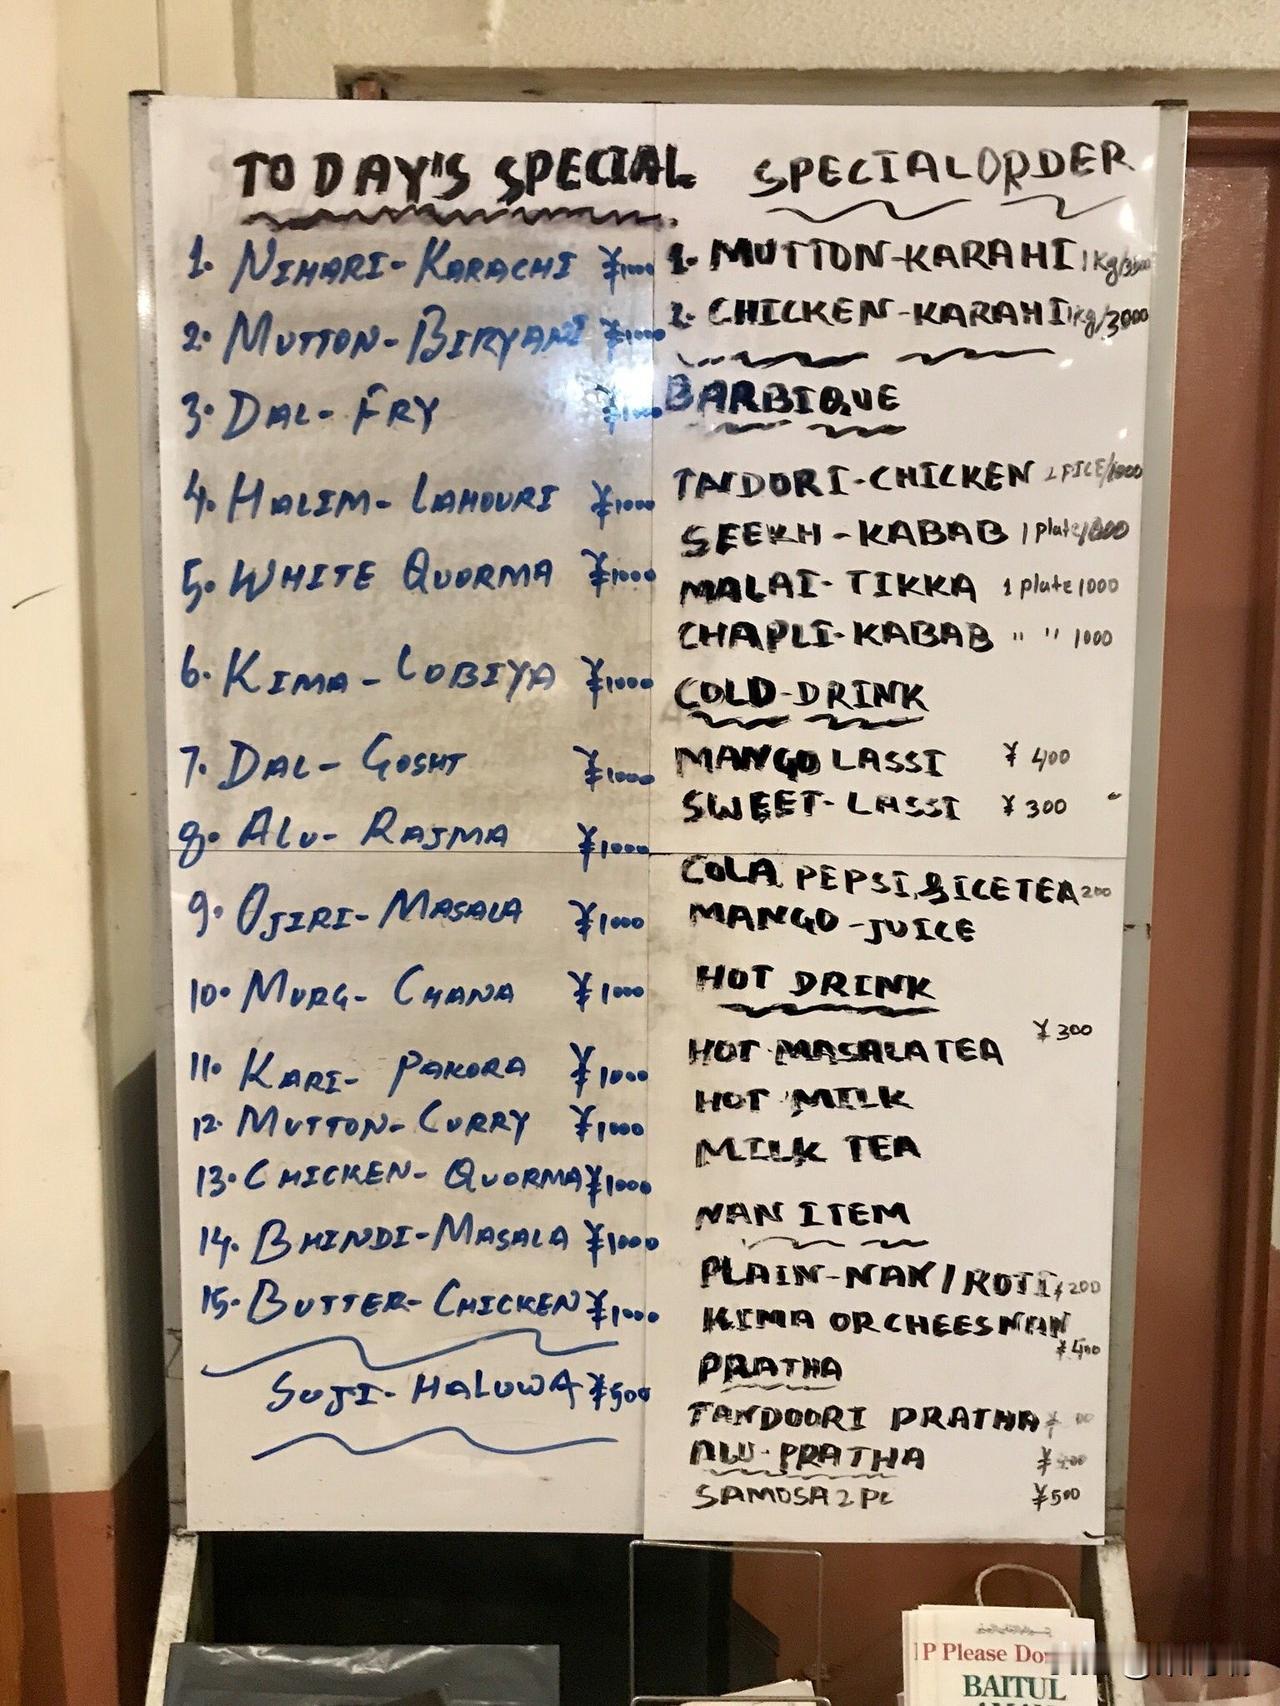 TODAY'S SPECIAL
1. NIHARI-KARACHI ¥1000
2. MUTTON-BIRYANI ¥1000
3. DAL-FRY ¥1000
4. HALIM-LAHOURI ¥1000
5. WHITE QUORMA ¥1000
6. KIMA-LOBIYA ¥1000
7. DAL-GOSHT ¥1000
8. ALU-RAJMA ¥1000
9. OJIRI-MASALA ¥1000
10. MURG-CHANA ¥1000
11. KARI-PAKORA ¥1000
12. MUTTON-CURRY ¥1000
13. CHICKEN-QUORMA ¥1000
14. BHINDI-MASALA ¥1000
15. BUTTER-CHICKEN ¥1000
SUJI-HALUWA ¥500
SPECIAL ORDER
1. MUTTON-KARAHI 1kg/
2. CHICKEN-KARAHI 1kg/3000
BARBIQUE
TANDORI-CHICKEN PICE/1000
SEEKH-KABAB 1 plate/
MALAI-TIKKA 1 plate 1000
CHAPLI-KABAB " " 1000
COLD-DRINK
MANGO LASSI ¥400
SWEET-LASSI ¥300
COLA, PEPSI, & ICETEA 200
MANGO-JUICE
HOT DRINK
¥300
HOT MASALA TEA
HOT MILK
MILK TEA
NAN ITEM
PLAIN-NAN/ROTI ¥200
KIMA OR CHEES NAN
¥400
PRATHA
TANDOORI PRATHA ¥
ALU-PRATHA ¥
SAMOSA 2 PC ¥500
P Please Do
BAITUL